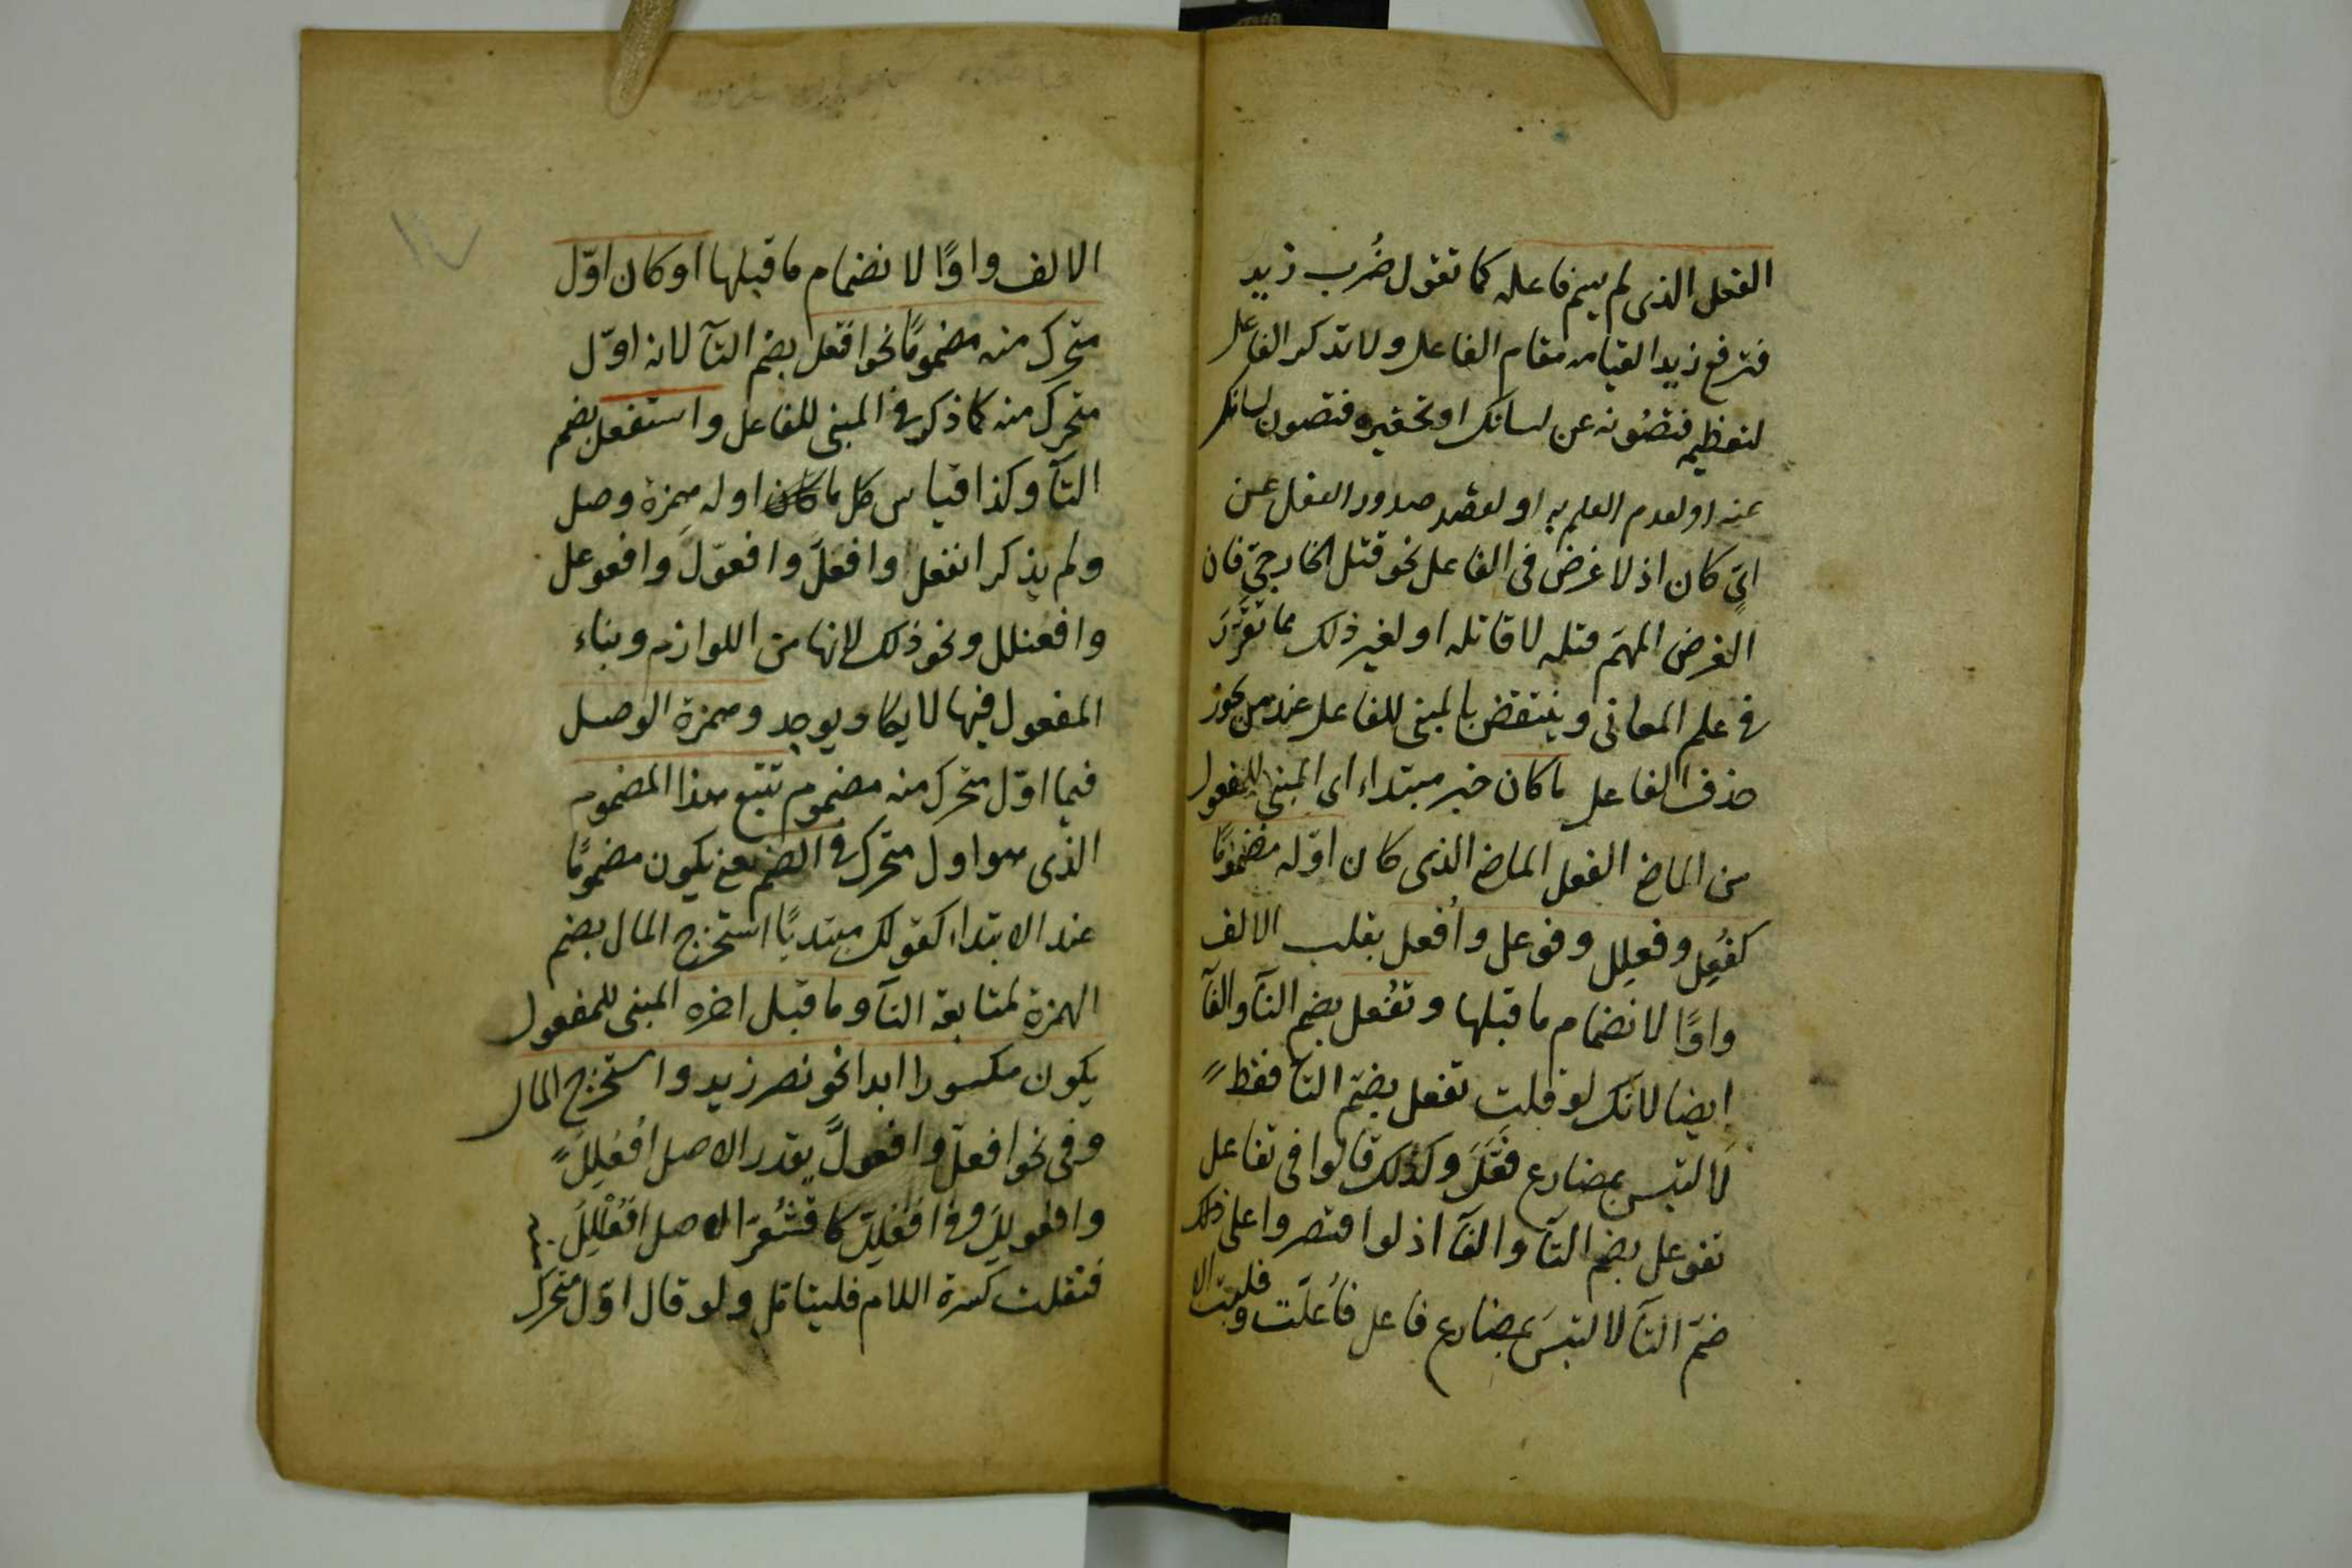 الفعل الذى لم يسم فاعله كما تقول ضُرب زيد
فترفع زيدا لقيامه مقام الفاعل ولا تذكر الفاعل
لتعظيمه فتصُونه عن لسانك او تحقيره فتصون لسانك
عنه او لعدم العلم به او لقصد صدور الفعل عن
اىّ كان اذ لا غرض فى الفاعل نحو قتل الخارجىّ فان
الغرض المهمّ قتله لا قاتله او لغير ذلك مما تقرّرَ
فى علم المعانى وينتقض بالمبنى للفاعل عند من يجوز
حذف الفاعل ما كان خبر مبتداء اى المبنى للمفعول
من الماضى الفعل الماضى الذى كان اوّله مضمومًا
كفُعِل وفعلِل وفوعل وأُفعل بقلب الالف
واوًا لانضمام ما قبلها وتفُعل بضم التآ والفآ
ايضا لانّك لو قلت تفعل بضمّ التآ فقط
لالتبس بمضارع فَعَّلَ وكذلك قالوا فى تفاعل
تفوعل بضم التآ والفآ اذ لو اقتصروا على ذلك
ضمّ التآ لالتبسَ بمضارع فاعل فاُعلَت وقلبت الا
الالف واوًا لانضمام ما قبلها او كان اوّل
متحرك منه مضمومًا نحو افتعل بضم التآ لانه اوّل
متحرك منه كما ذكر فى المبنى للفاعل واستفعل بضم
التآ وكذا قياس كل ما كان اوله همزة وصل
ولم يذكر انفعل وافعلَّ وافعوّلَ وافعوعل
وافعنلل ونحو ذلك لانها من اللوازم وبناء
المفعول فيها لا يكاد يوجد وهمزة الوصل
فيما اوّل متحرك منه مضموم تتبع هذا المضموم
الذى هو اول متحرك فى الضم يعنى يكون مضمومًا
عند الابتداء كقولك مبتديًا استخرج المال بضم
الهمزة لمتابعة التآ وما قبل اخره المبنى للمفعول
يكون مكسورا ابدا نحو نصر زيد واستخرج المال
وفى نحو افعلّ وافعولَّ يقدر الاصل اُفعُلِلَ
وافعولِلَ وفى افعُلِلّ كاقشُعِرّ الاصل افعُلْلِلَ
فنقلت كسرة اللام فليتامّل ولو قال اوّل متحرك